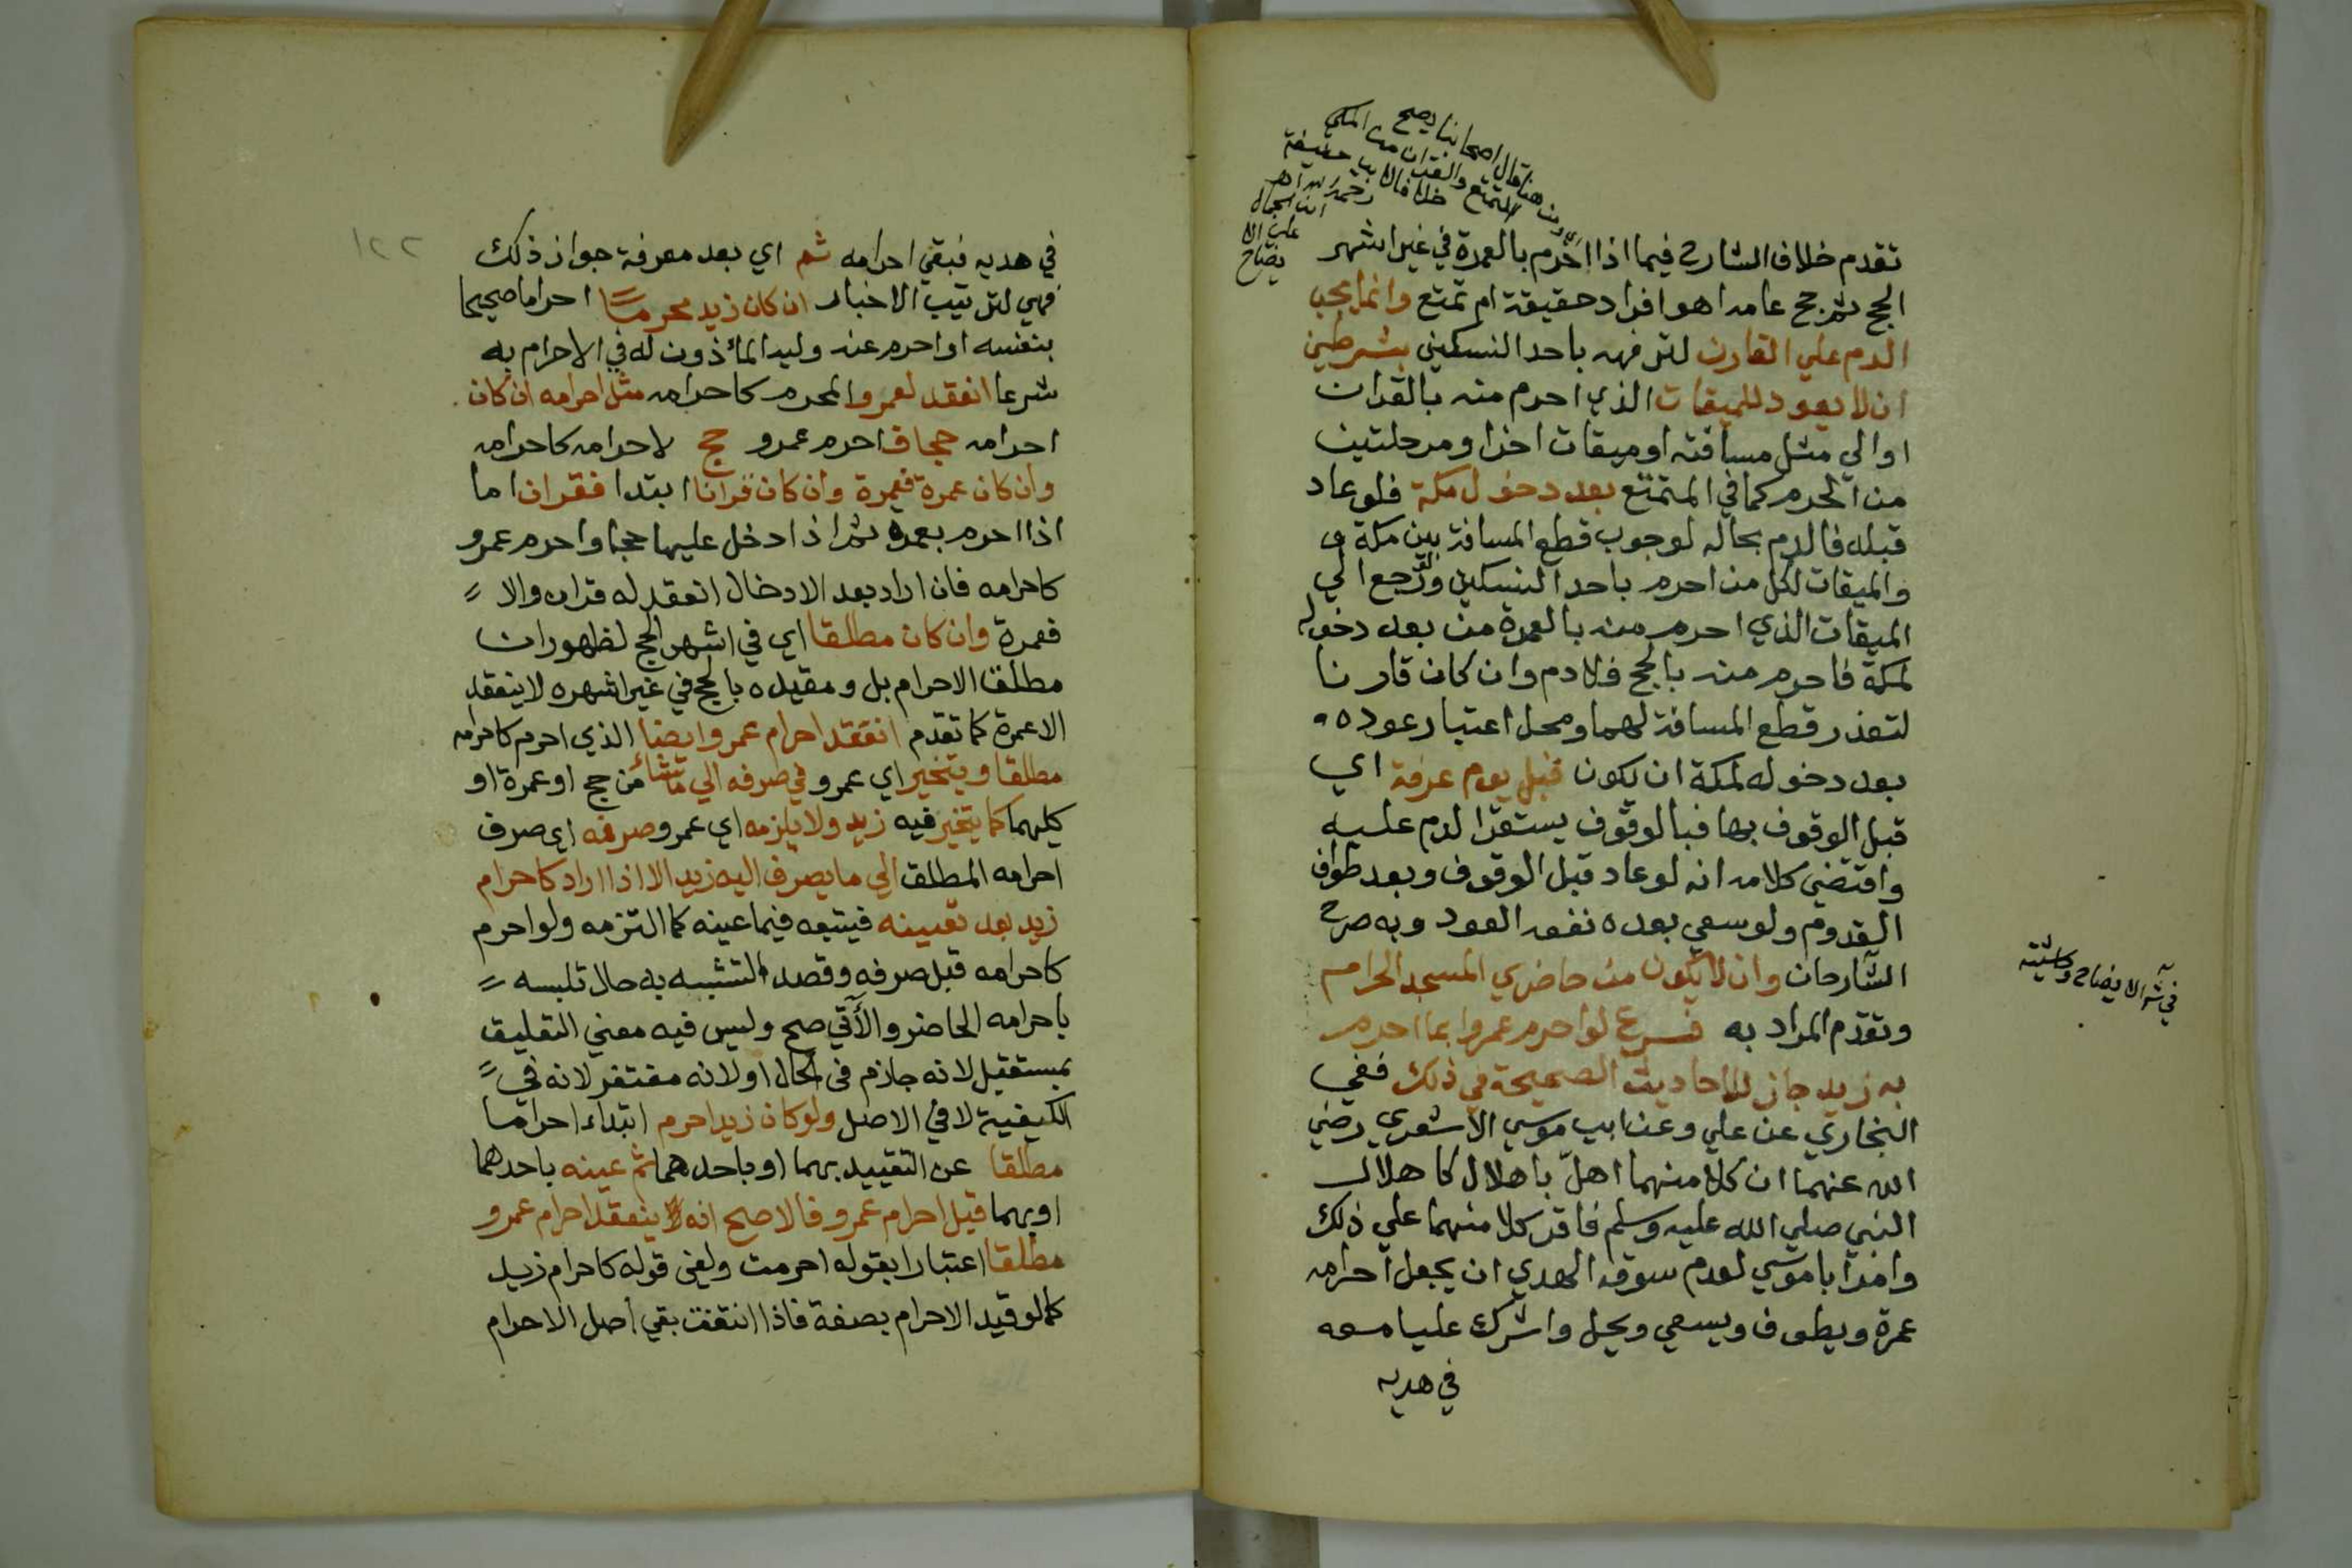 ومن هنا قال اصحابنا يصح
التمتع والقران من المكي
خلافا لابي حنيفة
رحمه الله اهـ
ابن الجمال
على الا
يضاح
تقدم خلاف الشارح فيما اذا احرم بالعمرة في غير اشهر
الحج ثم حج عامه اهو افراد حقيقة ام تمتع وانما يجب
الدم علي القارن لترفهه باحد النسكين بشرطين
ان لا يعود للميقات الذي احرم منه بالقران
او الي مثل مسافته او ميقات اخر او مرحلتين
من الحرم كما في المتمتع بعد دخول مكة فلو عاد
قبله فالدم بحاله لوجوب قطع المسافة بين مكة و
والميقات لكل من احرم باحد النسكين ورجع الي
الميقات الذي احرم منه بالعمرة من بعد دخوله
لمكة فاحرم منه بالحج فلا دم وان كان قارنا
لتعذر قطع المسافة لهما ومحل اعتبار عوده
بعد دخوله لمكة ان يكون قبل يوم عرفة اي
قبل الوقوف بها فبالوقوف يستقر الدم عليه
واقتضي كلامه انه لو عاد قبل الوقوف وبعد طواف
القدوم ولو سعي بعده نفعه العود وبه صرح
الشارحان وان لا يكون من حاضري المسجد الحرام
في شرح الايضاح وحاشيته
وتقدم المراد به فرع لو احرم عمرو بما احرم
به زيد جاز للاحاديث الصحيحة في ذلك ففي
البخاري عن علي وعن ابي موسي الاشعري رضي
الله عنهما ان كلا منهما اهلّ باهلال كاهلال
النبي صلي الله عليه وسلم فاقر كلا منهما علي ذلك
وامر ابا موسي لعدم سوقه الهدي ان يجعل احرامه
عمرة ويطوف ويسعي ويحل واشرك عليا معه
في هديه
١٢٢
في هديه فبقي احرامه ثم اي بعد معرفة جواز ذلك
فهي لترتيب الاخبار ان كان زيد محرما احراما صحيحا
بنفسه او احرم عنه وليه المأذون له في الاحرام به
شرعا انعقد لعمرو المحرم كاحرامه مثل احرامه ان كان
احرامه حجا فاحرم عمرو حج لاحرامه كاحرامه
وان كان عمرة فعمرة وان كان قرانا ابتدا فقران اما
اذا احرم بعمرة ثم اذا دخل عليها حجا واحرم عمرو
كاحرامه فان اراد بعد الادخال انعقد له قران والا
فعمرة وان كان مطلقا اي في اشهر الحج لظهور ان
مطلق الاحرام بل ومقيده بالحج في غير اشهره لا ينعقد
الا عمرة كما تقدم انعقد احرام عمرو ايضا الذي احرم كاحرامه
مطلقا ويتخير اي عمرو في صرفه الي ما شاء من حج او عمرة او
كليهما كما يتخير فيه زيد ولا يلزمه اي عمرو صرفه اي صرف
احرامه المطلق الي ما يصرف اليه زيد الا اذا اراد كاحرام
زيد بعد تعيينه فيتبعه فيما عينه كما التزمه ولو احرم
كاحرامه قبل صرفه وقصد التشبيه به حال تلبسه
باحرامه الحاضر والآتي صح وليس فيه معني التعليق
بمستقبل لانه جازم في الحال او لانه مغتفر لانه في
الكيفية لا في الاصل ولو كان زيد احرم ابتداء احراما
مطلقا عن التقييد بهما او باحدهما ثم عينه باحدهما
او بهما قبل احرام عمرو فالاصح انه ينعقد احرام عمرو
مطلقا اعتبارا بقوله احرمت ولغي قوله كاحرام زيد
كما لو قيد الاحرام بصفة فاذا انتفت بقي اصل الاحرام